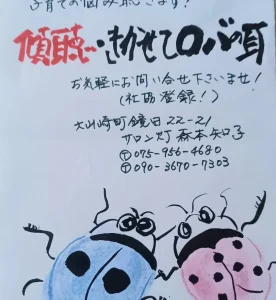 子育てお悩み聴きます!
傾聴…きかせてロバの耳
お気軽にお問い合せ下さいませ!
(社協登録!)
大山崎町鏡田22-21
サロン灯 森本知子
Ⓣ075-956-4680
Ⓣ090-3670-7303